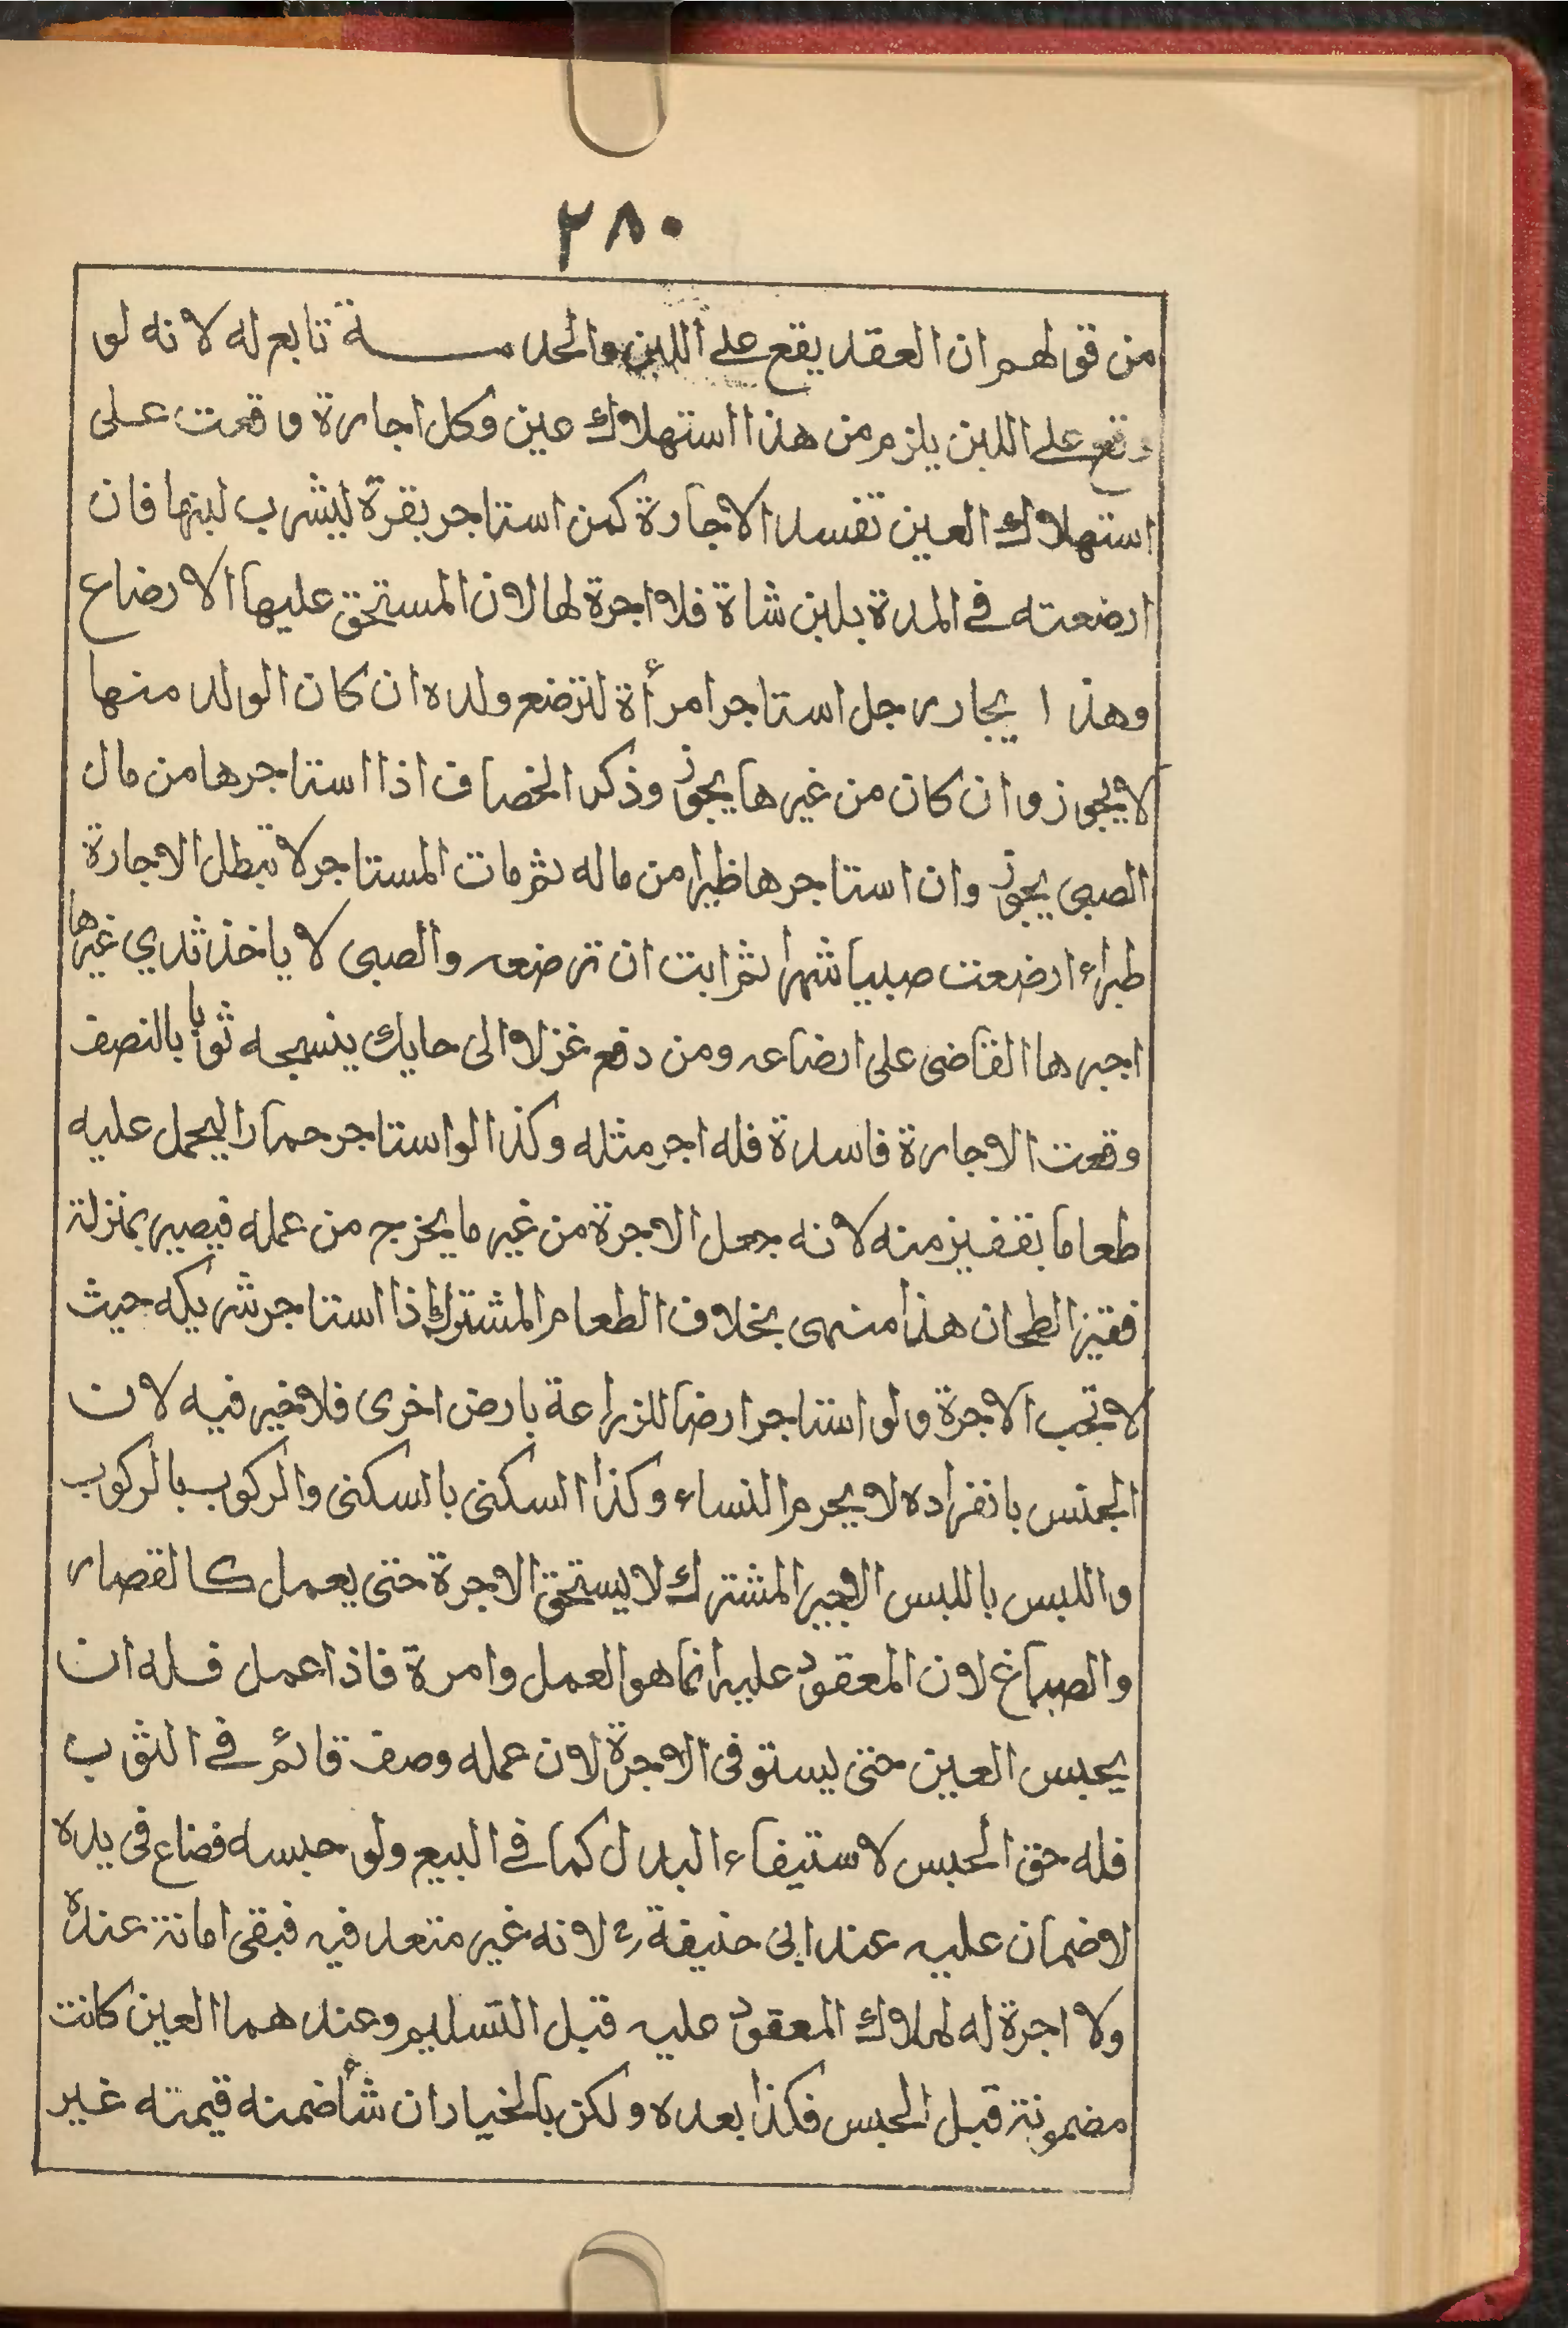 ٢٨٠
من قولهم ان العقد يقع على اللبن والخدمــــة تابع له لانه لو
وقع على اللبن يلزم من هذا استهلاك عين وكل اجارة وقعت على
استهلاك العين تفسد الاجارة كمن استاجر بقرة ليشرب لبنها فان
ارضعته في المدة بلبن شاة فلا اجرة لها لان المستحق عليها الارضاع
وهذا ايجار رجل استاجر امرأة لترضع ولده ان كان الولد منها
لا يجوز وان كان من غيرها يجوز وذكر الخصاف اذا استاجرها من مال
الصبى يجوز وان استاجرها ظيرا من ماله ثم مات المستاجر لا تبطل الاجارة
ارضعت صبيا شهرا ثم ابت ان ترضعه والصبى لا ياخذ ثدي غيرها
اجبرها القاضى على ارضاعه ومن دفع غزلا الى حايك ينسجه ثوبا بالنصف
وقعت الاجارة فاسدة فله اجر مثله وكذا لو استاجر حمارا ليحمل عليه
طعاما بقفيز منه لانه جعل الاجرة من غير ما يخرج من عمله فيصير بمنزلة
فقيز الطحان هذا منهى بخلاف الطعام المشترك اذا استاجر شريكه حيث
لا تجب الاجرة ولو استاجر ارضا للزراعة بارض اخرى فلا خير فيه لان
الجنس بانفراده لا يحرم النساء وكذا السكنى بالسكنى والركوب بالركوب
واللبس باللبس الاجير المشترك لا يستحق الاجرة حتى يعمل كالقصار
والصباغ لان المعقود عليه انما هو العمل وامرة فاذا عمل فله ان
يحبس العين حتى يستوفى الاجرة لان عمله وصف قائم في الثوب
فله حق الحبس لاستيفاء البدل كما في البيع ولو حبسه فضاع فى يده
لا ضمان عليه عند ابى حنيفة رح لانه غير متعد فيه فبقى امانة عنده
ولا اجرة له لهلاك المعقود عليه قبل التسليم وعندهما العين كانت
مضمونة قبل الحبس فكذا بعده ولكن بالخيار ان شأ ضمنه قيمته غير